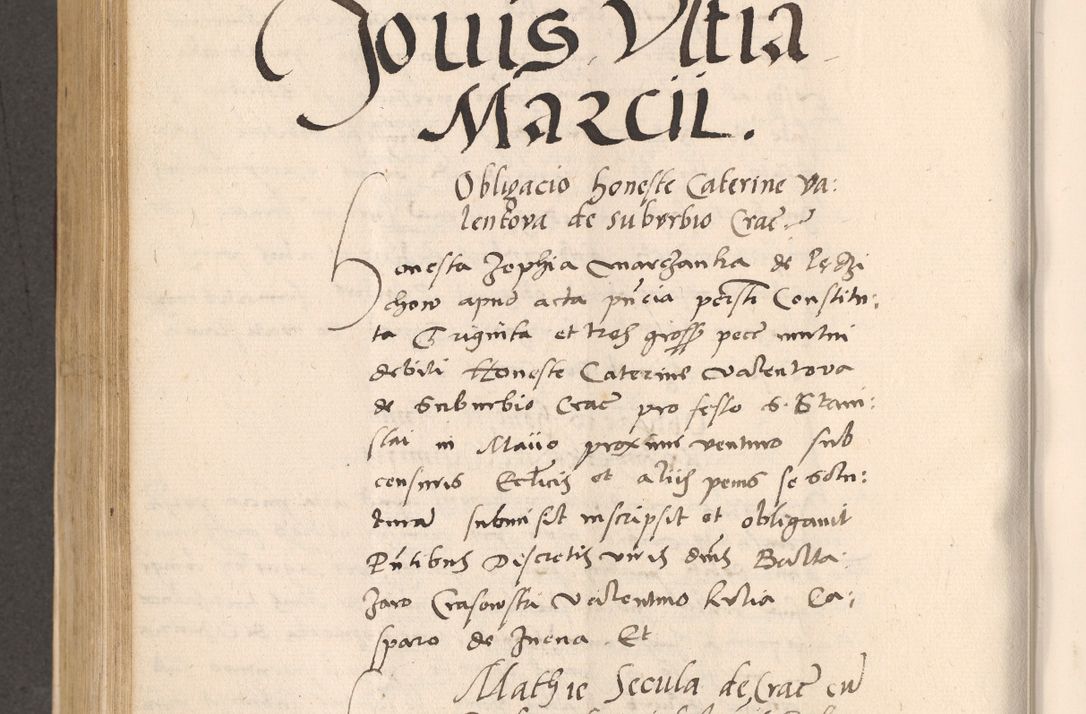 Jouis Vltia
Marcii.
Obligacio honeste Caterine va:
lentova de suburbio Crac
Honesta Zophia marczanka de Lędzi
chow apud acta pñcia persti Constitu:
ta Triginta et tres gross pece mutui
debiti Honeste Caterine valentova
de Suburbio Crac pro festo S. Stani:
slai in Maiio proxime venturo sub
censuris Ecclicis et aliis penis se solu:
turam submisit inscripsit et obligauit
Pñtibus Discretis viris dnis Balta
zaro Crasowski valentino kulia Ca:
sparo de Et
Mathie Secula de Crac cu